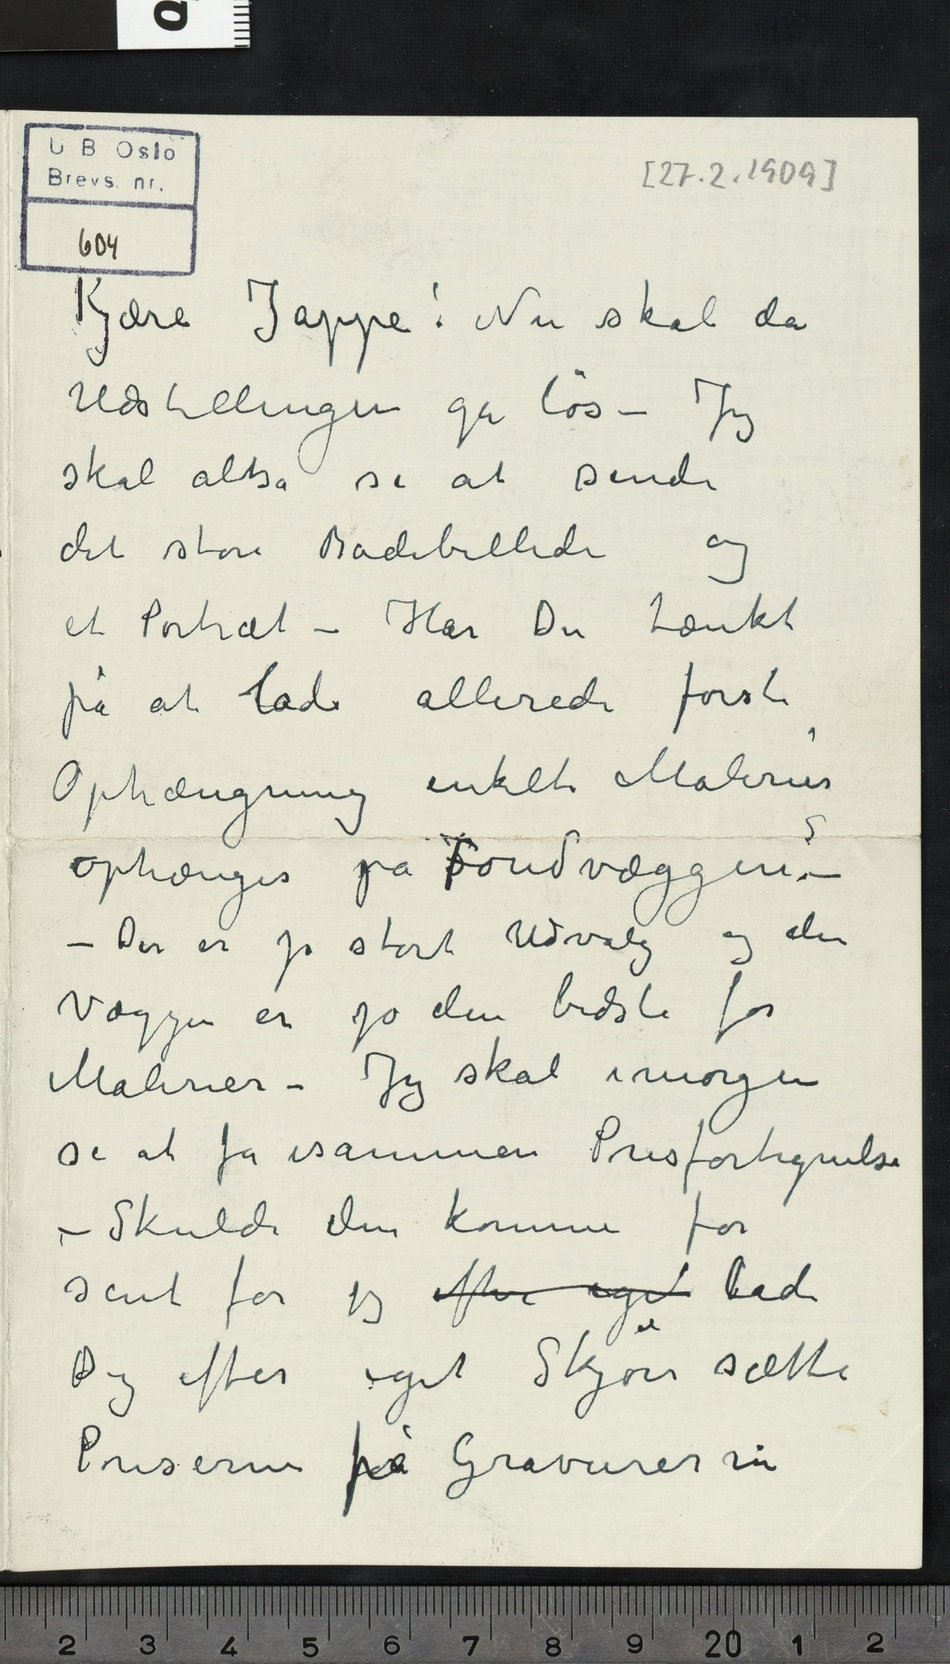 U B Oslo
Brevs. nr.
604
[27.2.1909]
Kjære Jappe! Nu skal da
Udstillingen ga løs – Jeg
skal altsa se at sende
det store Badebillede og
et Portræt – Har Du tænkt
på at lade allerede første
Ophængning enkelte Malerier
ophænges pa Fondvæggen? –
– Der er jo stort Udvalg og den
Væggen er jo den bedste for
Malerier – Jeg skal imorgen
se at fa isammen Prisfortegnelse
– Skulde den komme for
sent far jeg efter eget lade
Dig efter eget Skjøn sætte
Priserne på Gravurerne
2 3 4 5 6 7 8 9 20 1 2